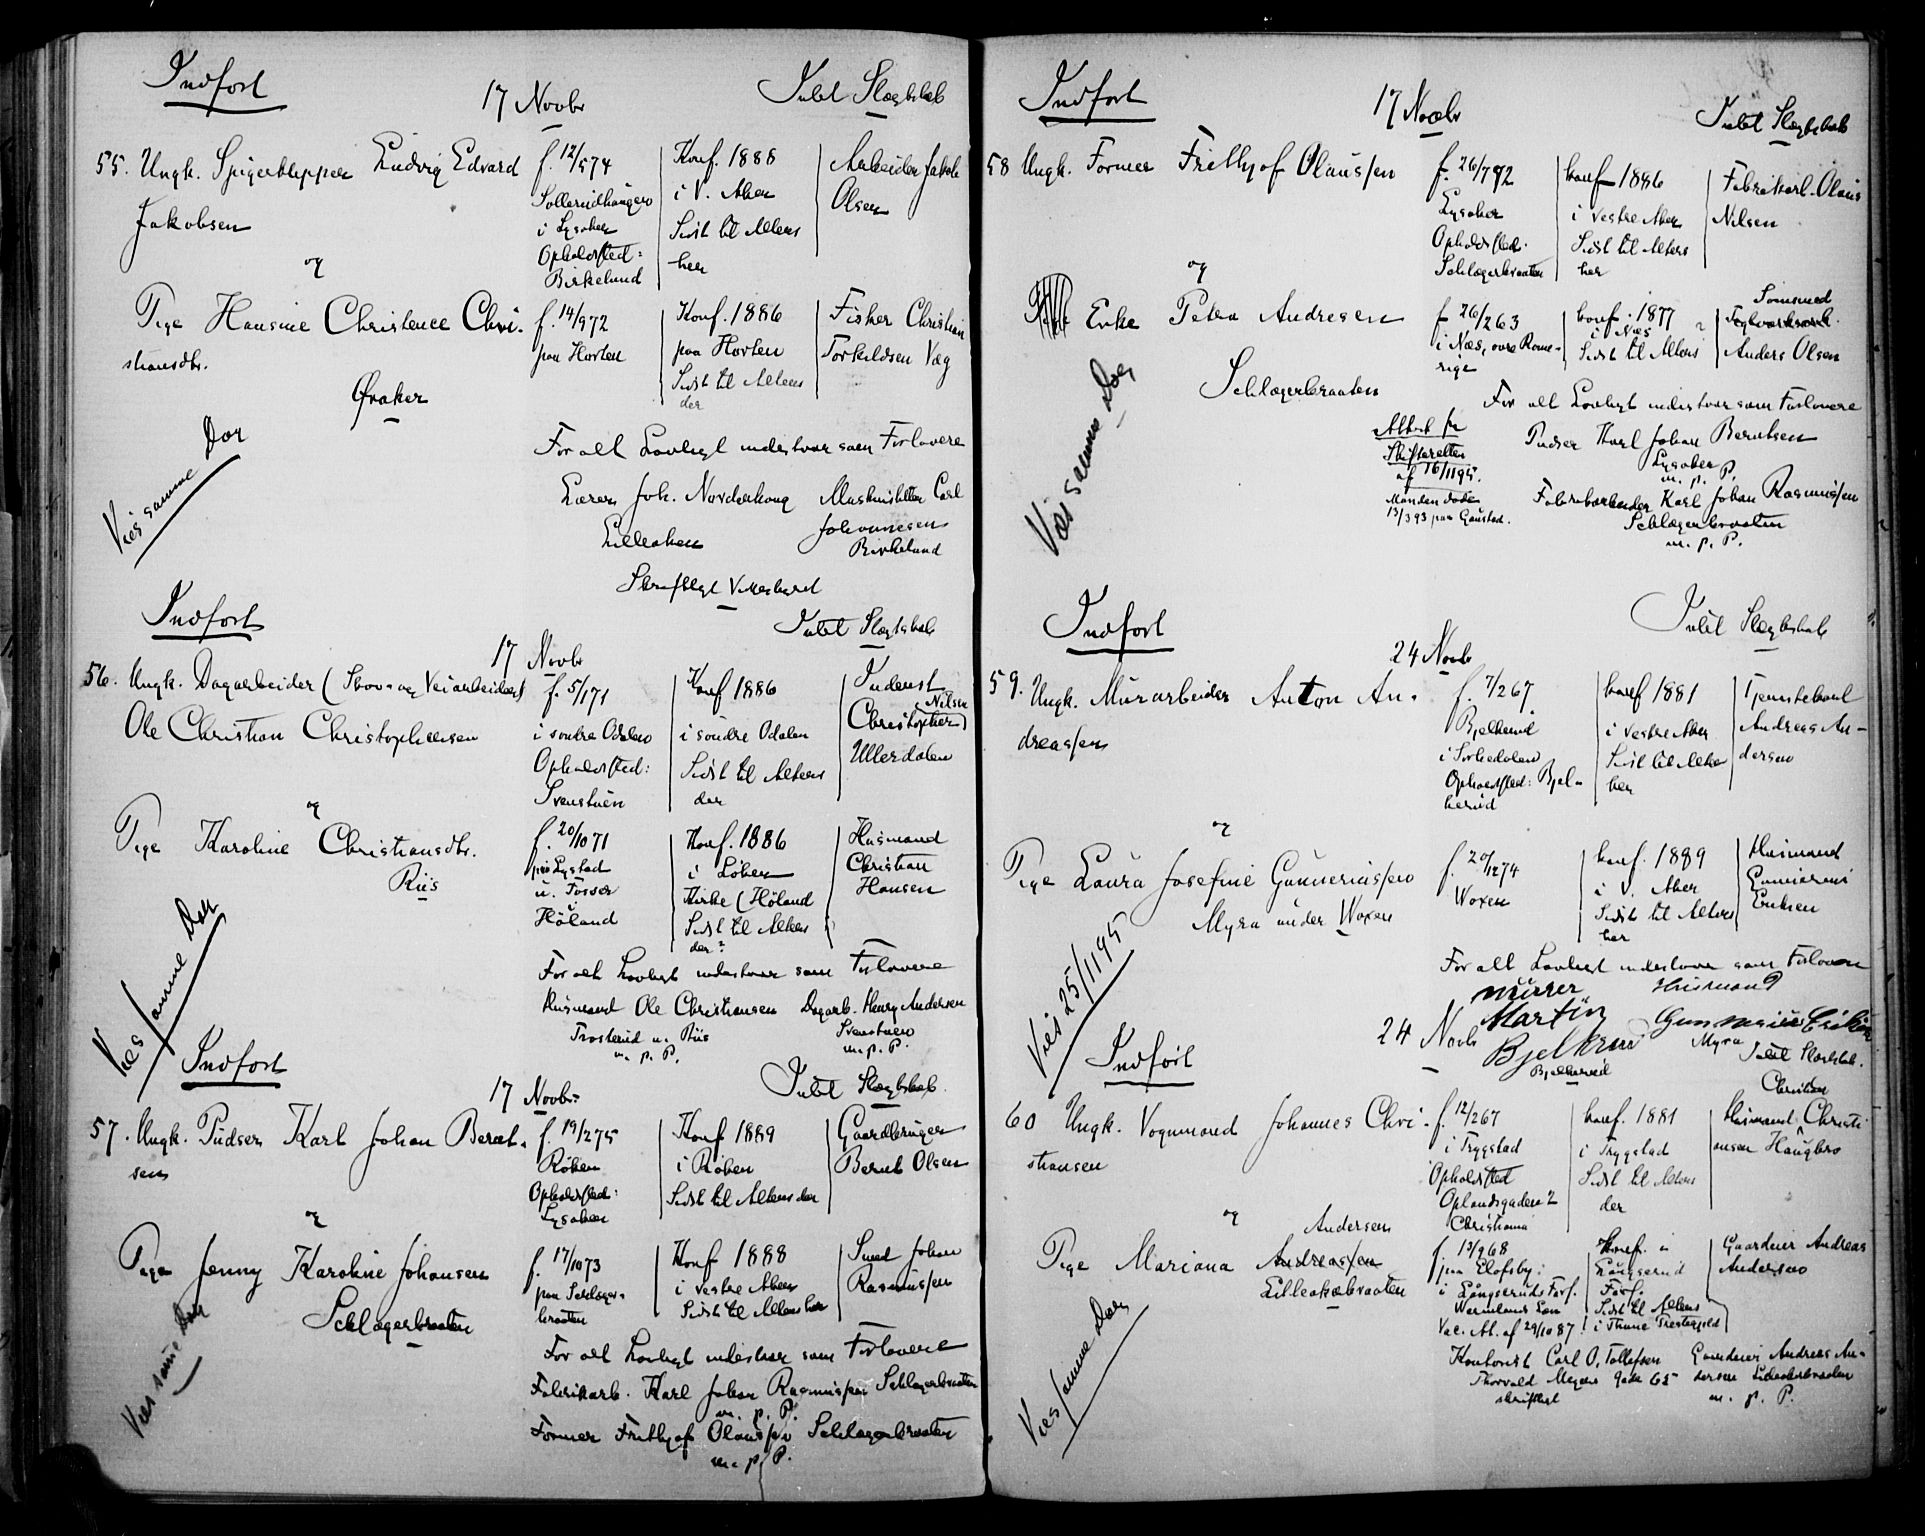 Indført
17 Novbr
Intet Slægtskab
55. Ungk. Spigerklipper Ludvig Edvard
Jakobsen
f. 12/5 74
Sollerudhaugen
i Lysaker
Opholdssted:
Birkelund
Konf. 1888
i V. Aker
Sidst til Alters
her
Arbeider Jakob
Olsen
og
Pige Hansine Christence Chri-
stiansdtr.
Øraker
f. 14/9 72
paa Horten
Konf. 1886
paa Horten
Sidst til Alters
der
Fisker Christian
Torkildsen Væg
Vies samme Dag
For alt Lovligt indestaar som Forlovere
Lærer Joh. Norderhaug
Lilleaker
Maskinsletter Carl
Johannesen
Birkelund
Skriftligt Vitterliget
Indført
17 Novbr
Intet Slægtskab
56. Ungk. Dagarbeider (Skov- og Veiarbeider)
Ole Christian Christophersen
f. 5/1 71
i søndre Odalen
Opholdssted:
Svenstuen
Konf 1886
i søndre Odalen
Sidst til Alters
der
Inderst
Christopher Nilsen
Ullerdalen
og
Pige Karoline Christiansdtr.
Riis
f. 20/10 71
paa Lystad
u. Fosser
i
Høland
Konf. 1886
i Løken
Kirke (Høland
Sidst til Alters
der?
Husmand
Christian
Hansen
Vies samme Dag
For alt Lovligt indestaar som Forlovere
Husmand Ole Christiansen
Trosterud u. Riis
m. p. P.
Dagarb. Henry Andersen
Svenstuen
m. p. P.
Indført
17 Novbr.
Intet Slægtskab
57. Ungk. Pudser Karl Johan Bernt-
sen
f. 19/2 75
Røken
Opholdssted:
Lysaker
Konf 1889
i Røken
Sidst til Alters der
Gaardbruger
Bernt Olsen
og
Pige Jenny Karoline Johansen
Schlagerbraaten
f. 17/10 73
paa Schlager-
braaten
Konf 1888
i vestre Aker
Sidst til Alters her
Smed Johan
Rasmussen
Vies samme Dag
For alt Lovligt indestaar som Forlovere
Fabrikarb. Karl Johan Rasmussen Schlagerbraaten
m. p. P.
Former Frithjof Olaussen Schlagerbraaten
m. p. P.
Indført
17 Novbr
Intet Slægtskab
58 Ungk. Former Frithjof Olaussen
f. 26/7 72
Lysaker
Opholdssted:
Schlagerbraaten
konf 1886
i vestre Aker
Sidst til Alters
her
Fabrikarb. Olaus
Nilsen
og
Enke Petra Andresen
Schlagerbraaten
f 26/2 63
i Næs, øvre Rome-
rige
konf. 1877
i Næs
Sidst til Alters ?
Sømsmed
Anders Olsen
Vies samme Dag
Attest fr
Skifteretten
af 16/11 95.
Manden døde
13/3 93 paa Gaustad.
For alt Lovligt indestaar som Forlovere
Pudser Karl Johan Berntsen
Lysaker
m. p. P.
Fabrikarbeider Karl Johan Rasmussen
Schlagerbraaten
m. p. P.
Indført
24 Novbr
Intet Slægtskab
59. Ungk. Murarbeider Anton An-
dreassen
f. 7/2 67
Bjelkerud
i Sørkedalen
Opholdssted: Bjel-
kerud
konf 1881
i vestre Aker
Sidst til Alters
her
Tjenstekarl
Andreas An-
dersen
og
Pige Laura Josefine Gunneriussen
Myra under Woxen
f. 20/12 74
Woxen
konf. 1889
i V. Aker
Sidst til Alters
her
Husmand
Gunnerius
Eriksen
Vies 25/11 95
For alt Lovligt indestaar som Forlovere
Mürer
Martin
Bjelkerud
Bjelkerud
Husmand
Gunnerius Eriksen
Myra
Indført
24 Novbr
Intet Slægtskab.
60 Ungk. Vognmand Johannes Chri-
stiansen
f. 12/2 67
i Trygstad
Opholdssted
Oplandsgaden 2
Christiania
konf. 1881
i Trygstad
Sidst til Alters
der
Christian
Husmand Christi-
ansen Haugbro
og
Andersen
Pige Mariana Andreassen
Lilleakerbraaten
f. 13/9 68
paa Elofsby
i Långseruds Førs.
Wermlands Len
Vac. At. af 29/10 87
Konf. i
Långserud
Førs.
Sidst til Alters
i Thune Præstegjeld
Gaardeier Andreas
Andersen
Vies samme Dag
Kontorist Carl O. Tollefsen
Thorvald Meyers Gade 65
skriftligt
Gaardeier Andreas An-
dersen Lilleakerbraaten
m. p. P.